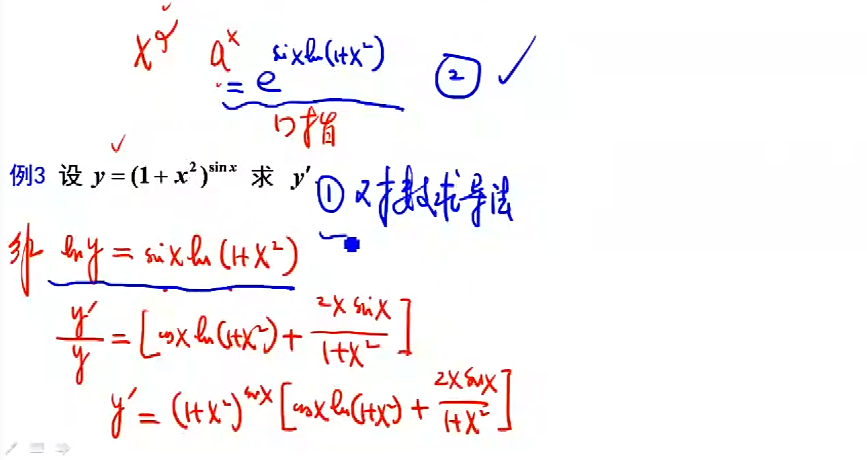 x^α a^x
= e^{sinxln(1+x²)} ② ✓
口指
例3 设 y = (1 + x²)^{sin x} 求 y′
① 对数求导法
解 lny = sinxln(1+x²)
y′/y = [cosxln(1+x²) + 2xsinx/(1+x²)]
y′ = (1+x²)^{sinx} [cosxln(1+x²) + 2xsinx/(1+x²)]